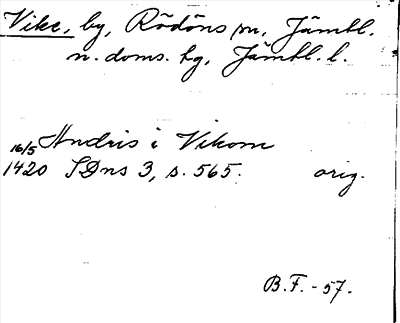 Vike, by, Rödöns sn, Jämtl.
n. doms. hg, Jämtl. l.
Andris i Vikom
16/5
1420 SDns 3, s. 565. orig.
B.F. - 57.